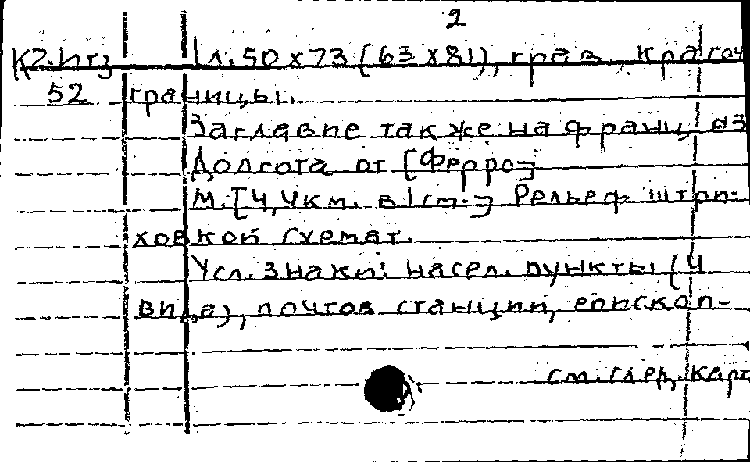 2
К2.Ит3 1 л. 50 х 73 (63 х 81), грав., краſоч
52 границы.
Заглавие также на франц. яз
Долгота от [Ферро]
М. [4,4км. в 1см.] Рельеф штри-
ховкой схемат.
Усл. знаки: насел. пункты (4
вида), почтов. станции, епископ-
см. след. карт